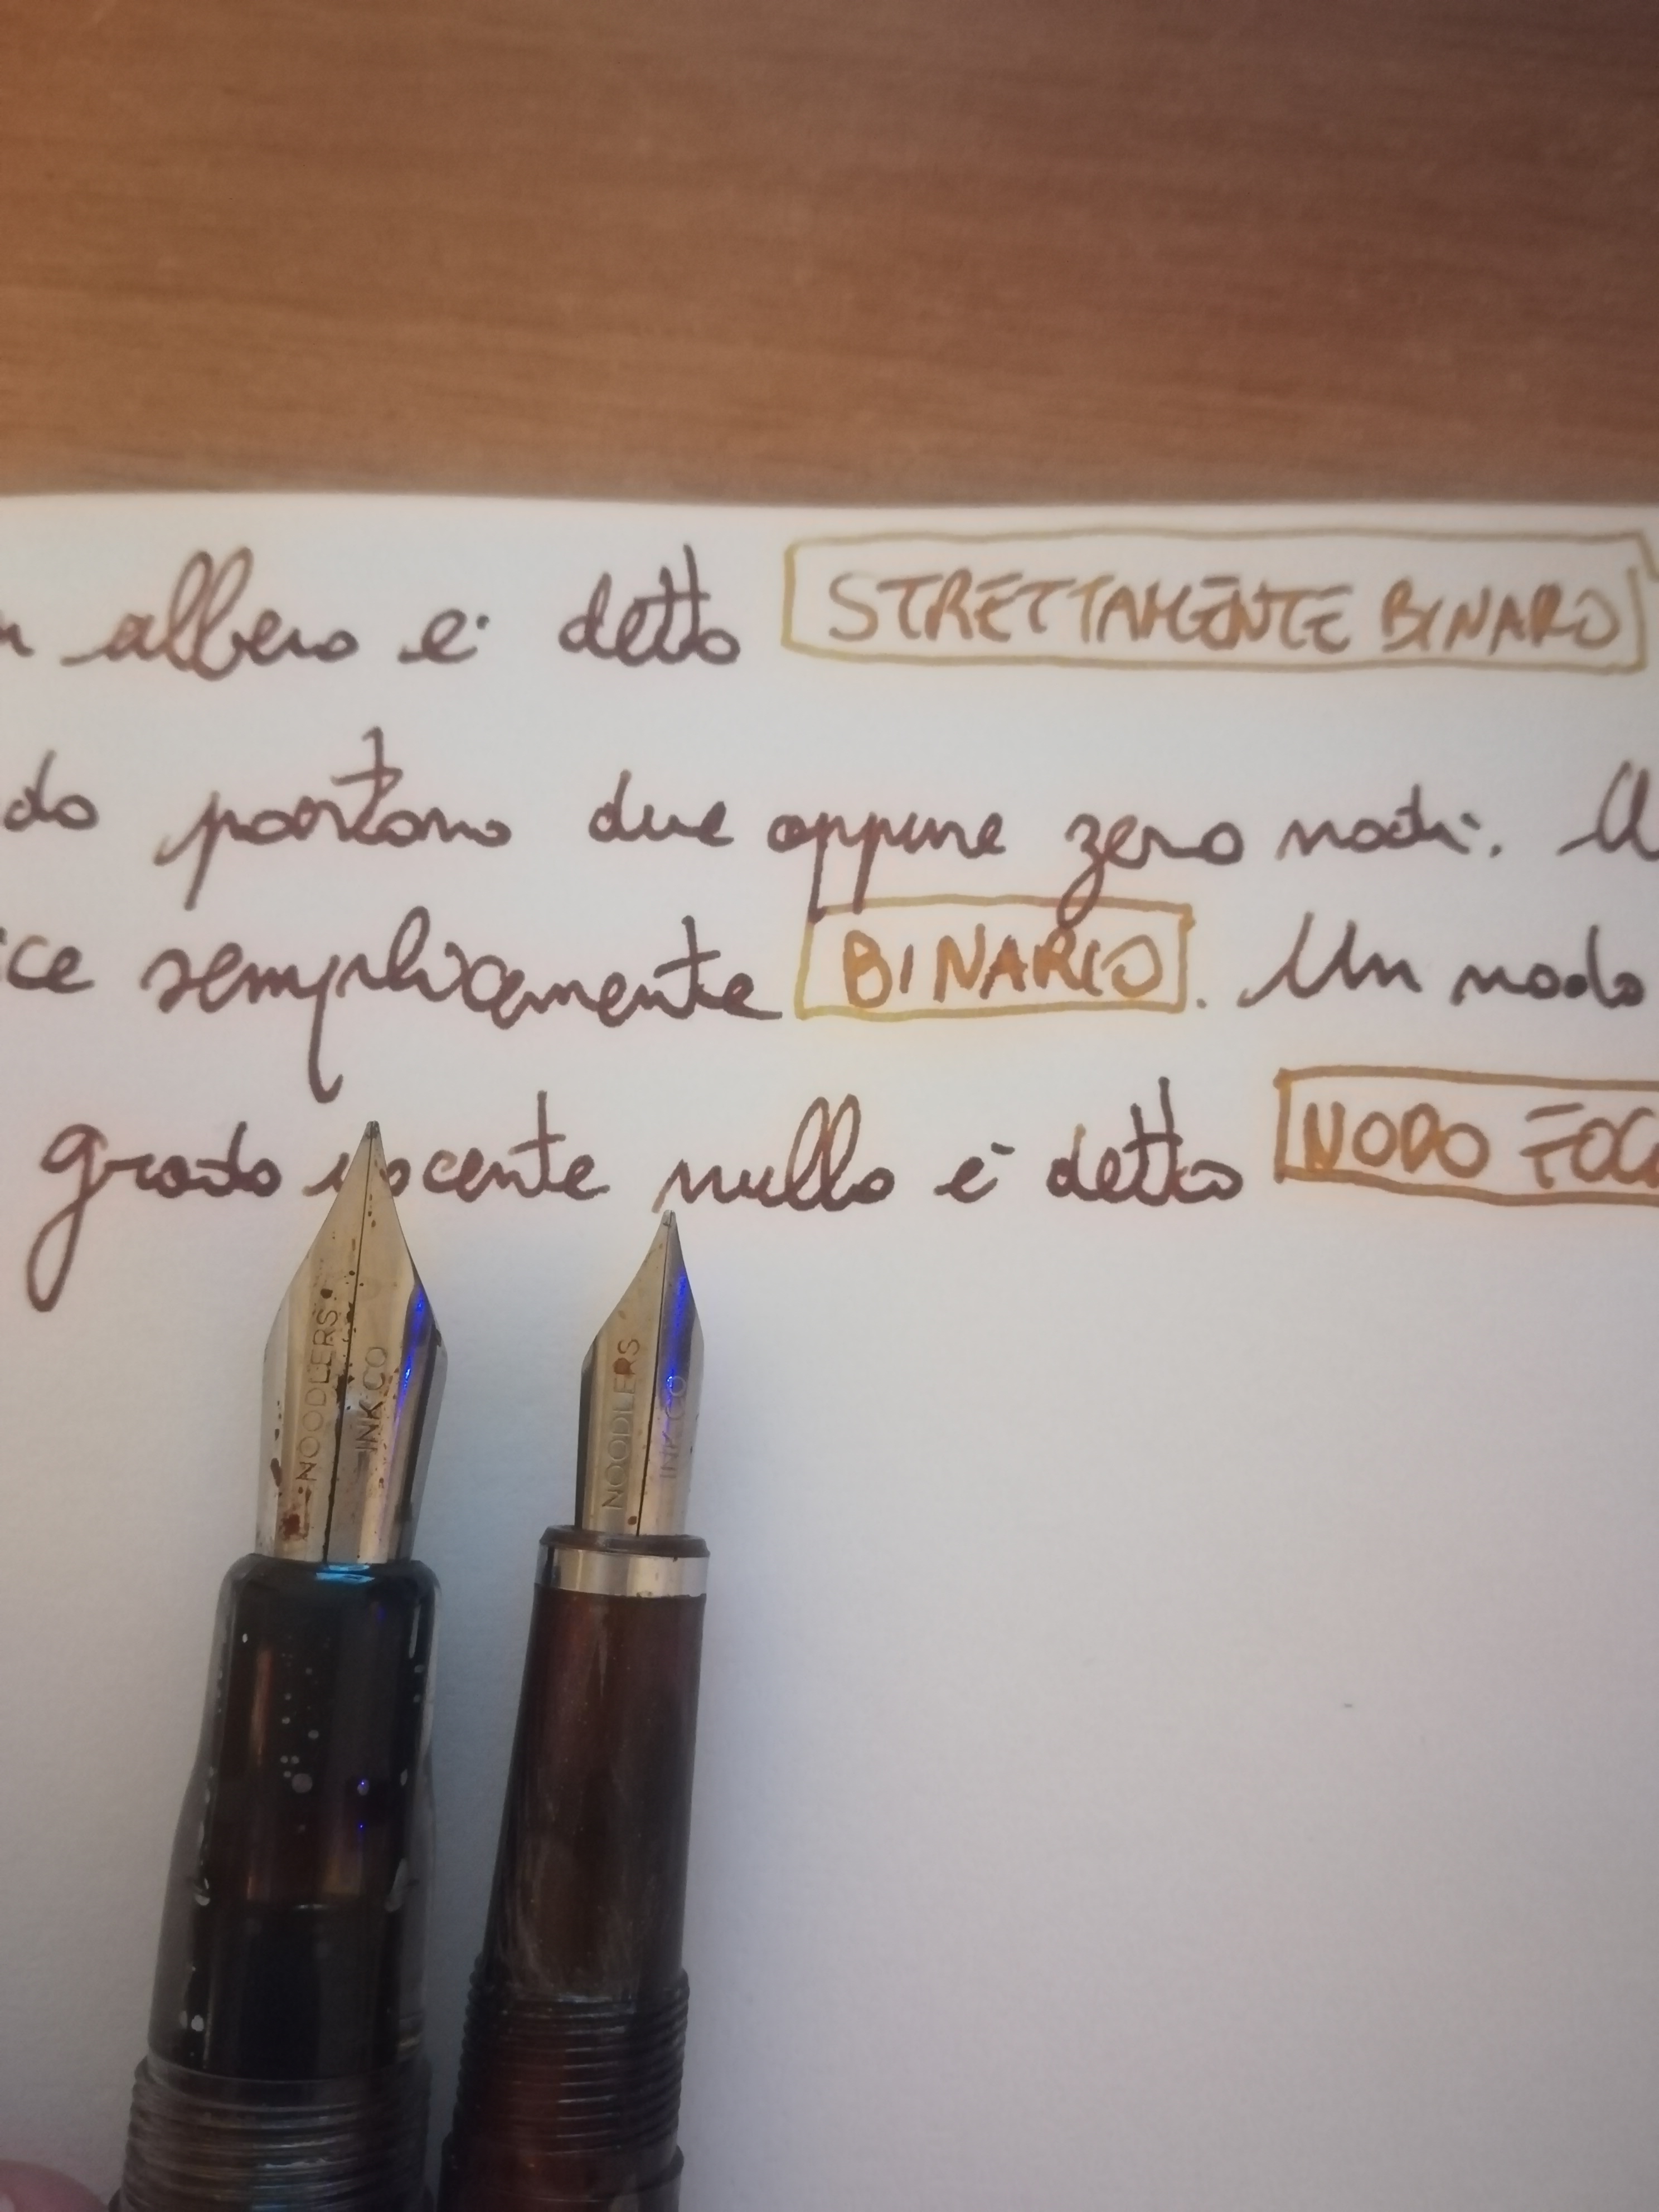 n albero e' detto STRETTAMENTE BINARO
do portano due oppure zero nodi. U
ice semplicemente BINARIO. Un nodo
grado uscente nullo e' detto NODO FOG
NOODLERS
INK CO
NOODLERS
INK CO